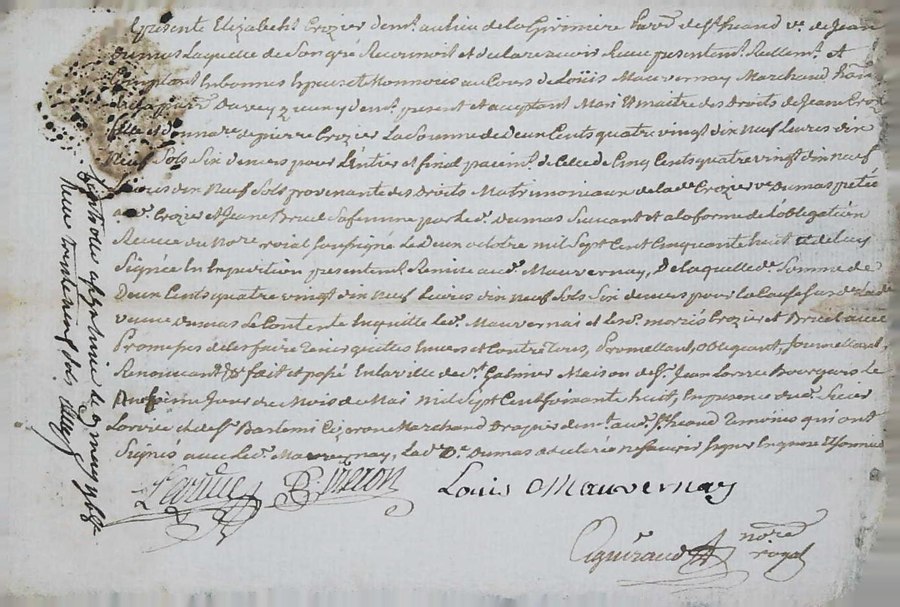 presente Elizabeth Crozier demt. au lieu de la Gironiere parr. de St. heand ve. de Jean
Dumas Laquelle de Son gré Reconnoit et declare avoir Reçue presentemt. Reellemt. et
Comptant En bonnes Especes et Monnoies au Cours de Loüis Mauvernay Marchand
demt. present et acceptant Mari Et maitre des Droits de Jeane Croz
Donnare. de pierre Crozier La Somme de Deux Cents quatre vingt dix Neuf Livres dix
Neuf Sols Six deniers pour L'entier et final paiemt. de Celle de Cinq Cents quatre vingt dix neuf
Livres dix Neuf Sols provenante des Droits Matrimoniaux de lade. Crozier ve. Dumas
Crozier et Jeane Bruel Sa femme par led. Dumas Suivant et a la forme de L'obligation
Recuue du Nore. roial Soussigné Le Deux octobre mil Sept Cent Cinquante huit
Signée En Expedition presentemt. Remise aud. Mauvernay, De laquelle de. Somme de
Deux Cents quatre vingt dix neuf Livres dix Neuf Sols Six deniers pour la Cause Susde. lade.
veuve Dumas Se Contente En quitte led. Mauvernai et lesd. mariés Crozier et Bruel avec
Promesses de les faire Tenir quittes Envers et Contre Tous, Promettant, obligeant, Soumettant,
Renonceant &a fait et passé En la ville de St. Galmier Maison de Sr. Jean Lorrie Bourgeois le
Jour du Mois de Mai Mil Sept Cent Soixante huit, En presence dud. Sieur
Lorrie et de Sr. Bartelemi Cizeron Marchand Drapier demt. aud. St. heand Temoins qui ont
Signés avec led. Mauvernay, lad. ve. Dumas a declaré ne Sçavoir Signer Enquise Et Sommée
Lorrie B Cizeron Louis Mauvernay
nore.
royal
Conte. a St. galmier le 27 may 1768
Reçu trente cinq Sols